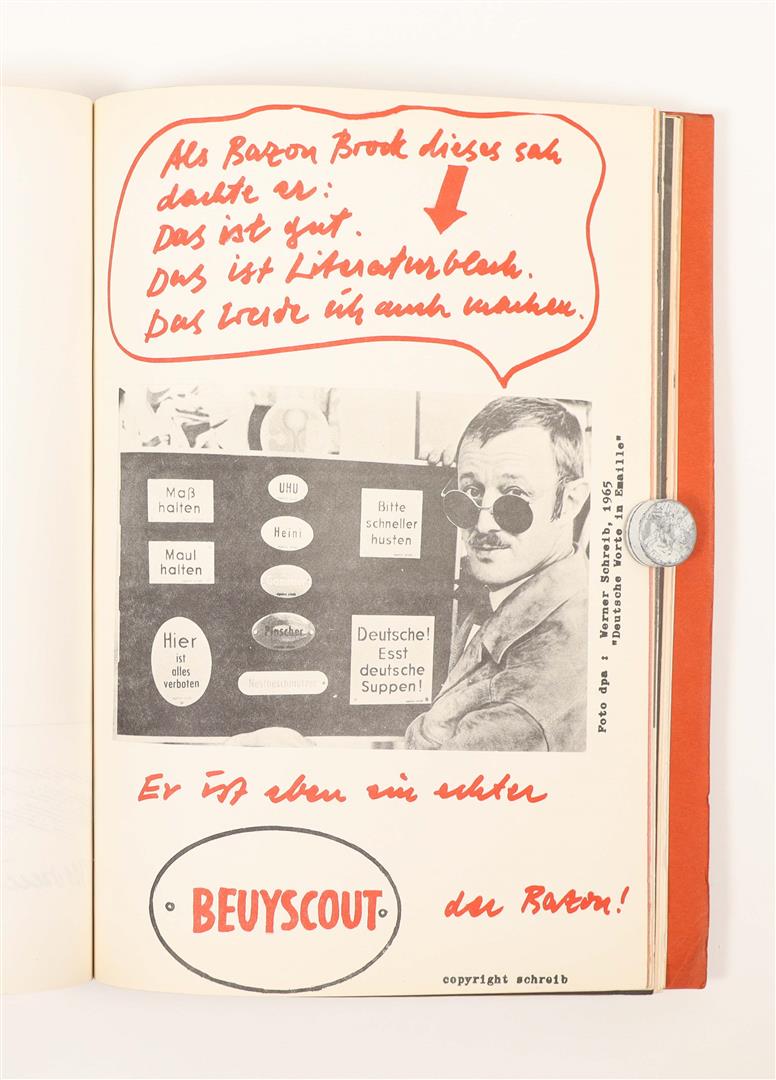 Als Bazon Brock dieses sah
dachte er:
Das ist gut.
Das ist Literaturblech.
Das werde ich auch machen.
Maß
halten
Maul
halten
Hier
ist
alles
verboten
UHU
Heini
Gammler
Pinscher
Nestbeschmutzer
Bitte
schneller
husten
Deutsche!
Esst
deutsche
Suppen!
Foto dpa : Werner Schreib, 1965
"Deutsche Worte in Emaille"
Er ist eben ein echter
BEUYSCOUT
der Bazon!
copyright schreib